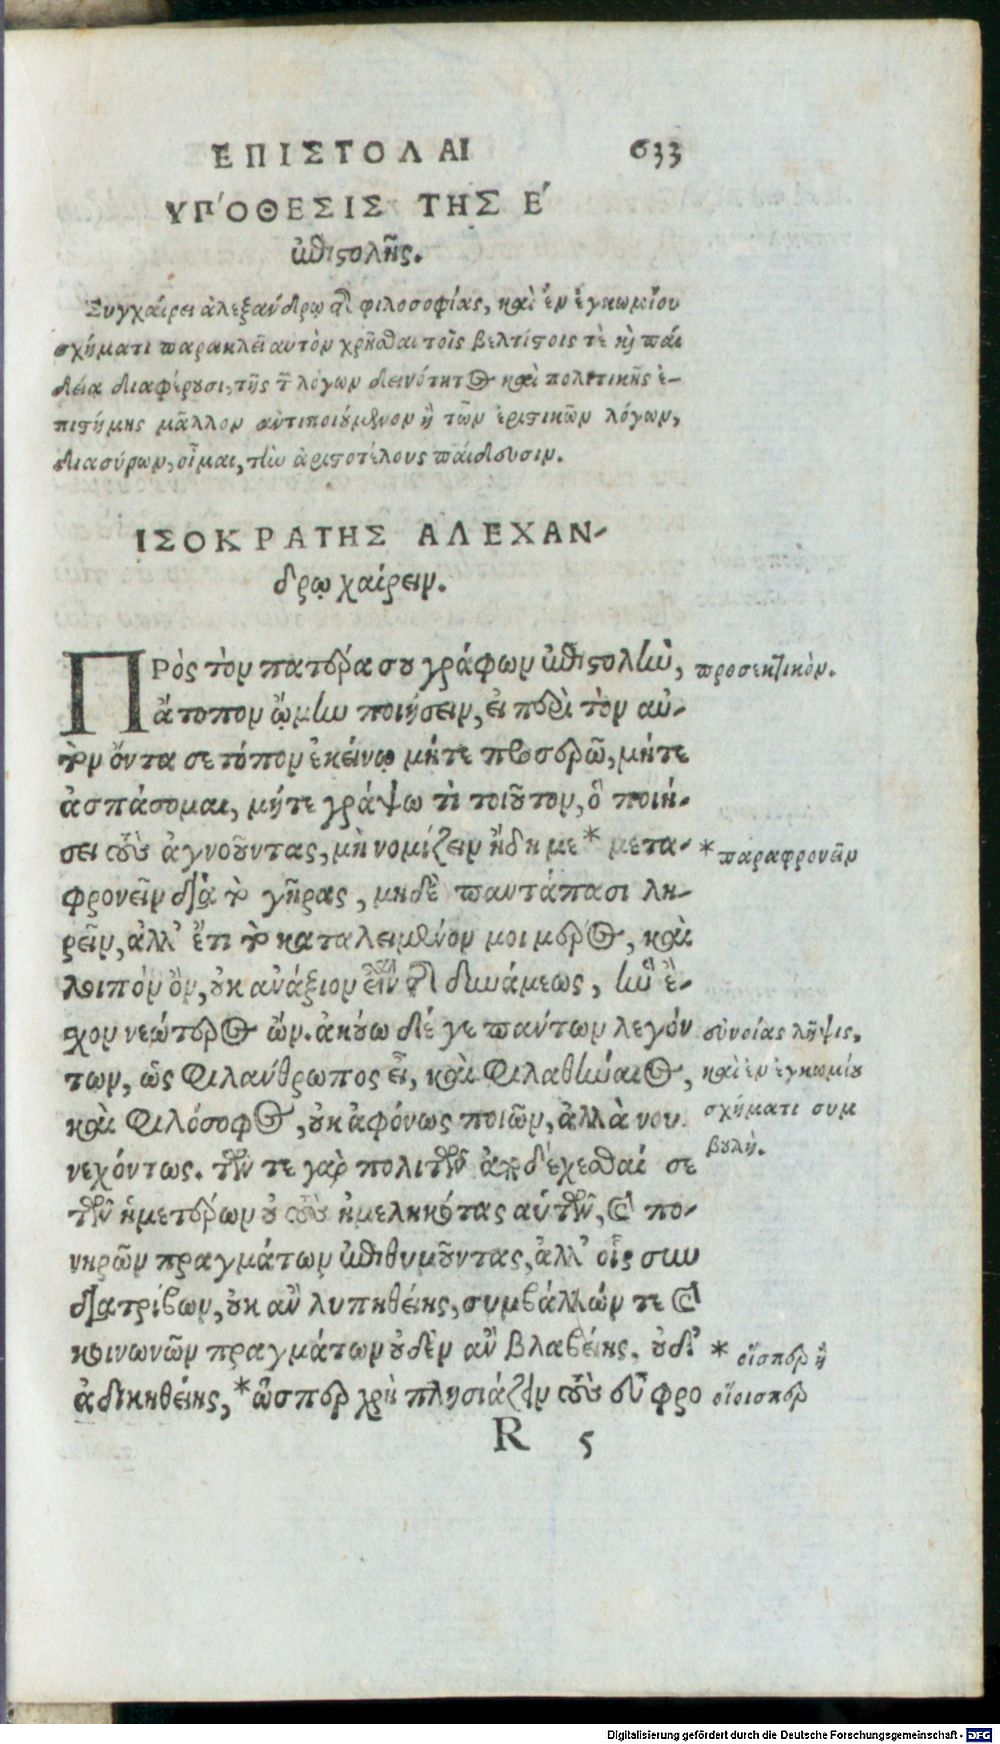 ΕΠΙΣΤΟΛΑΙ 633
ΥΠΌΘΕΣΙΣ ΤΗΣ Ε΄
ἐπιστολῆς.
Συγχαίρει ἀλεξάνδρῳ τῆς φιλοσοφίας, καὶ ἐν ἐγκωμίου
σχήματι παρακλεῖ αὐτὸν χρῆσθαι τοῖς βελτίστοις τὲ κὶ παι
δείᾳ διαφέρουσι, τῆς τῶν λόγων δεινότητος καὶ πολιτικῆς ἐ-
πιστήμης μᾶλλον ἀντιποιούμενον ἢ τῶν ἐριστικῶν λόγων,
διασύρων, οἶμαι, τὴν ἀριστοτέλους παίδευσιν.
ΙΣΟΚΡΑΤΗΣ ΑΛΕΧΑΝ-
δρῳ χαίρειν.
ΠΡὸς τὸν πατέρα σου γράφων ἐπιστολὴν, προσεκτικὸν.
ἄτοπον ᾤμην ποιήσειν, εἰ περὶ τὸν αὐ-
τὸν ὄντα σε τόπον ἐκείνῳ μήτε προσερῶ, μήτε
ἀσπάσομαι, μήτε γράψω τὶ τοιοῦτον, ὃ ποιή-
σει τοὺς ἀγνοοῦντας, μὴ νομίζειν ἤδη με * μετα- * παραφρονεῖν
φρονεῖν διὰ τὸ γῆρας, μηδὲ παντάπασι λη-
ρεῖν, ἀλλ' ἔτι τὸ καταλειμμένον μοι μέρος, καὶ
λοιπὸν ὂν, οὐκ ἀνάξιον εἶναι τῆς δυνάμεως, ἣν εἶ-
χον νεώτερος ὤν. ἀκούω δέ γε πάντων λεγόν συνοίας λῆψις,
των, ὡς φιλάνθρωπος εἶ, καὶ φιλαθήναιος, καὶ ἐν ἐγκωμίου
καὶ φιλόσοφος, οὐκ ἀφρόνως ποιῶν, ἀλλὰ νου σχήματι συμ
νεχόντως. τῶν τε γὰρ πολιτῶν ἀποδέχεσθαί σε βουλή.
τῶν ἡμετέρων οὐ τοὺς ἠμεληκότας αὑτῶν, καὶ πο-
νηρῶν πραγμάτων ἐπιθυμοῦντας, ἀλλ' οἷς συν
διατρίβων, οὐκ ἂν λυπηθείης, συμβάλλών τε καὶ
κοινωνῶν πραγμάτων οὐδὲν ἂν βλαβείης, οὐδ' * οἵσπερ ἢ
ἀδικηθείης, * ὥσπερ χρὴ πλησιάζειν τοὺς εὖ φρο οἵοισπερ
R 5
Digitalisierung gefördert durch die Deutsche Forschungsgemeinschaft - DFG